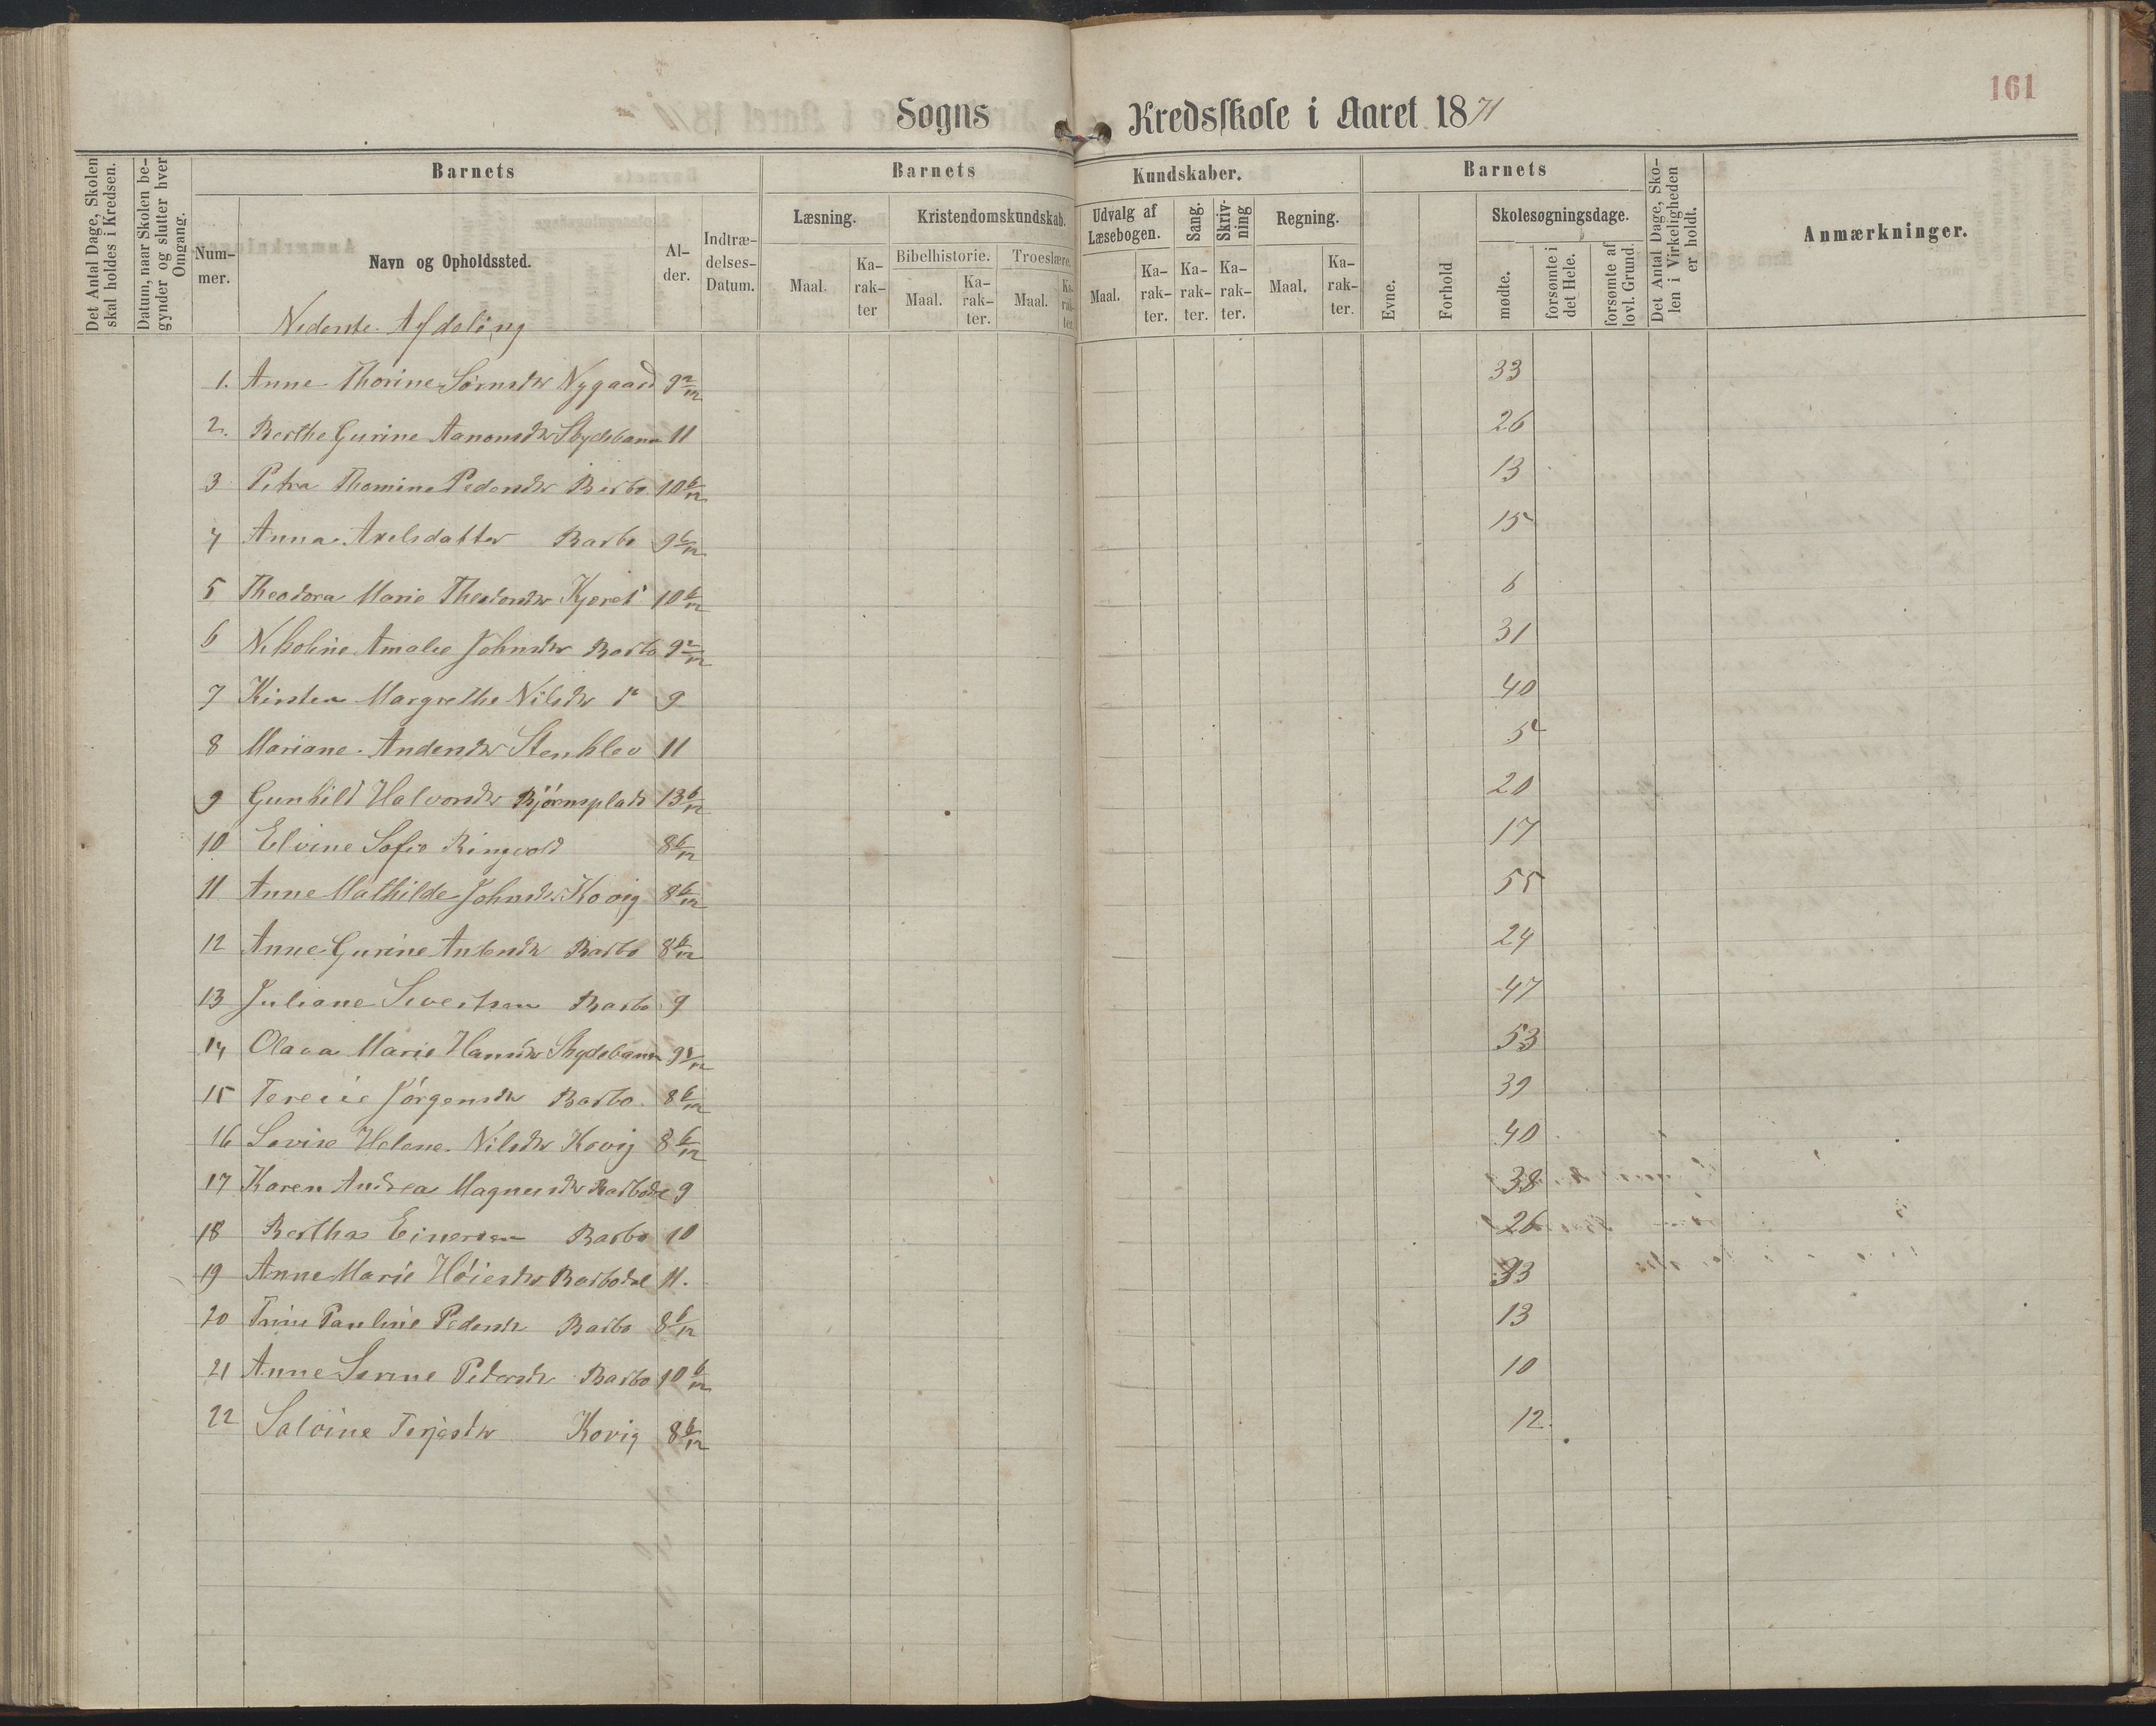 161
Sogns Kredsskole i Aaret 1871
Det Antal Dage, Skolen skal holdes i Kredsen.
Datum, naar Skolen begynder og slutter hver Omgang.
Barnets
Barnets
Kundskaber.
Barnets
Det Antal Dage, Skolen i Virkeligheden er holdt.
Anmærkninger.
Nummer.
Navn og Opholdssted.
Alder.
Indtrædelses-Datum.
Læsning.
Kristendomskundskab.
Udvalg af Læsebogen.
Sang.
Skrivning
Regning.
Evne.
Forhold
Skolesøgningsdage.
Bibelhistorie.
Troeslære.
Maal.
Karakter
Maal.
Karakter.
Maal.
Karakter.
Maal.
Karakter.
Karakter.
Karakter.
Maal.
Karakter.
mødte.
forsømte i det Hele.
forsømte af lovl. Grund.
Nederste Afdeling
1. Anne Thorine Sörnsdtr Nygaard 9 2/12 33
2. Berthe Gurine Aanonsdtr 11 26
3 Petra Thomine Pedersdtr Barbo 10 6/12 13
4 Anna Axelsdatter Barbo 9 6/12 15
5 Theodora Marie Theodorsdtr 10 6/12 6
6 Nikoline Amalie Johnsdtr Barbo 9 2/12 31
7 Kirsten Margrethe Nilsdtr do 9 40
8 Mariane Andersdtr Stenklev 11 5
9 Gunhild Halvorsdtr Björnsplads 13 6/12 20
10 Elvine Sofie Ringvold 8 6/12 17
11 Anne Mathilde Johnsdtr Kovig 8 6/12 55
12 Anne Gurine Barbo 8 6/12 24
13 Juliane Sivertsen Barbo 9 47
14 Olava Marie Hansdtr 9 53
15 Jörgensdtr Barbo 8 6/12 39
16 Lovise Helene Nilsdtr Kovig 8 6/12 40
17 Karen Andrea Magnusdtr Barbodal 9 38
18 Berthas Einersen Barbo 10 26
19 Anne Marie Höiesdtr Barbodal 11. 33
20 Trine Pauline Pedersdtr Barbo 8 6/12 13
21 Anne Serine Pedersdtr Barbo 10 6/12 10
22 Salvine Terjesdtr Kovig 8 6/12 12